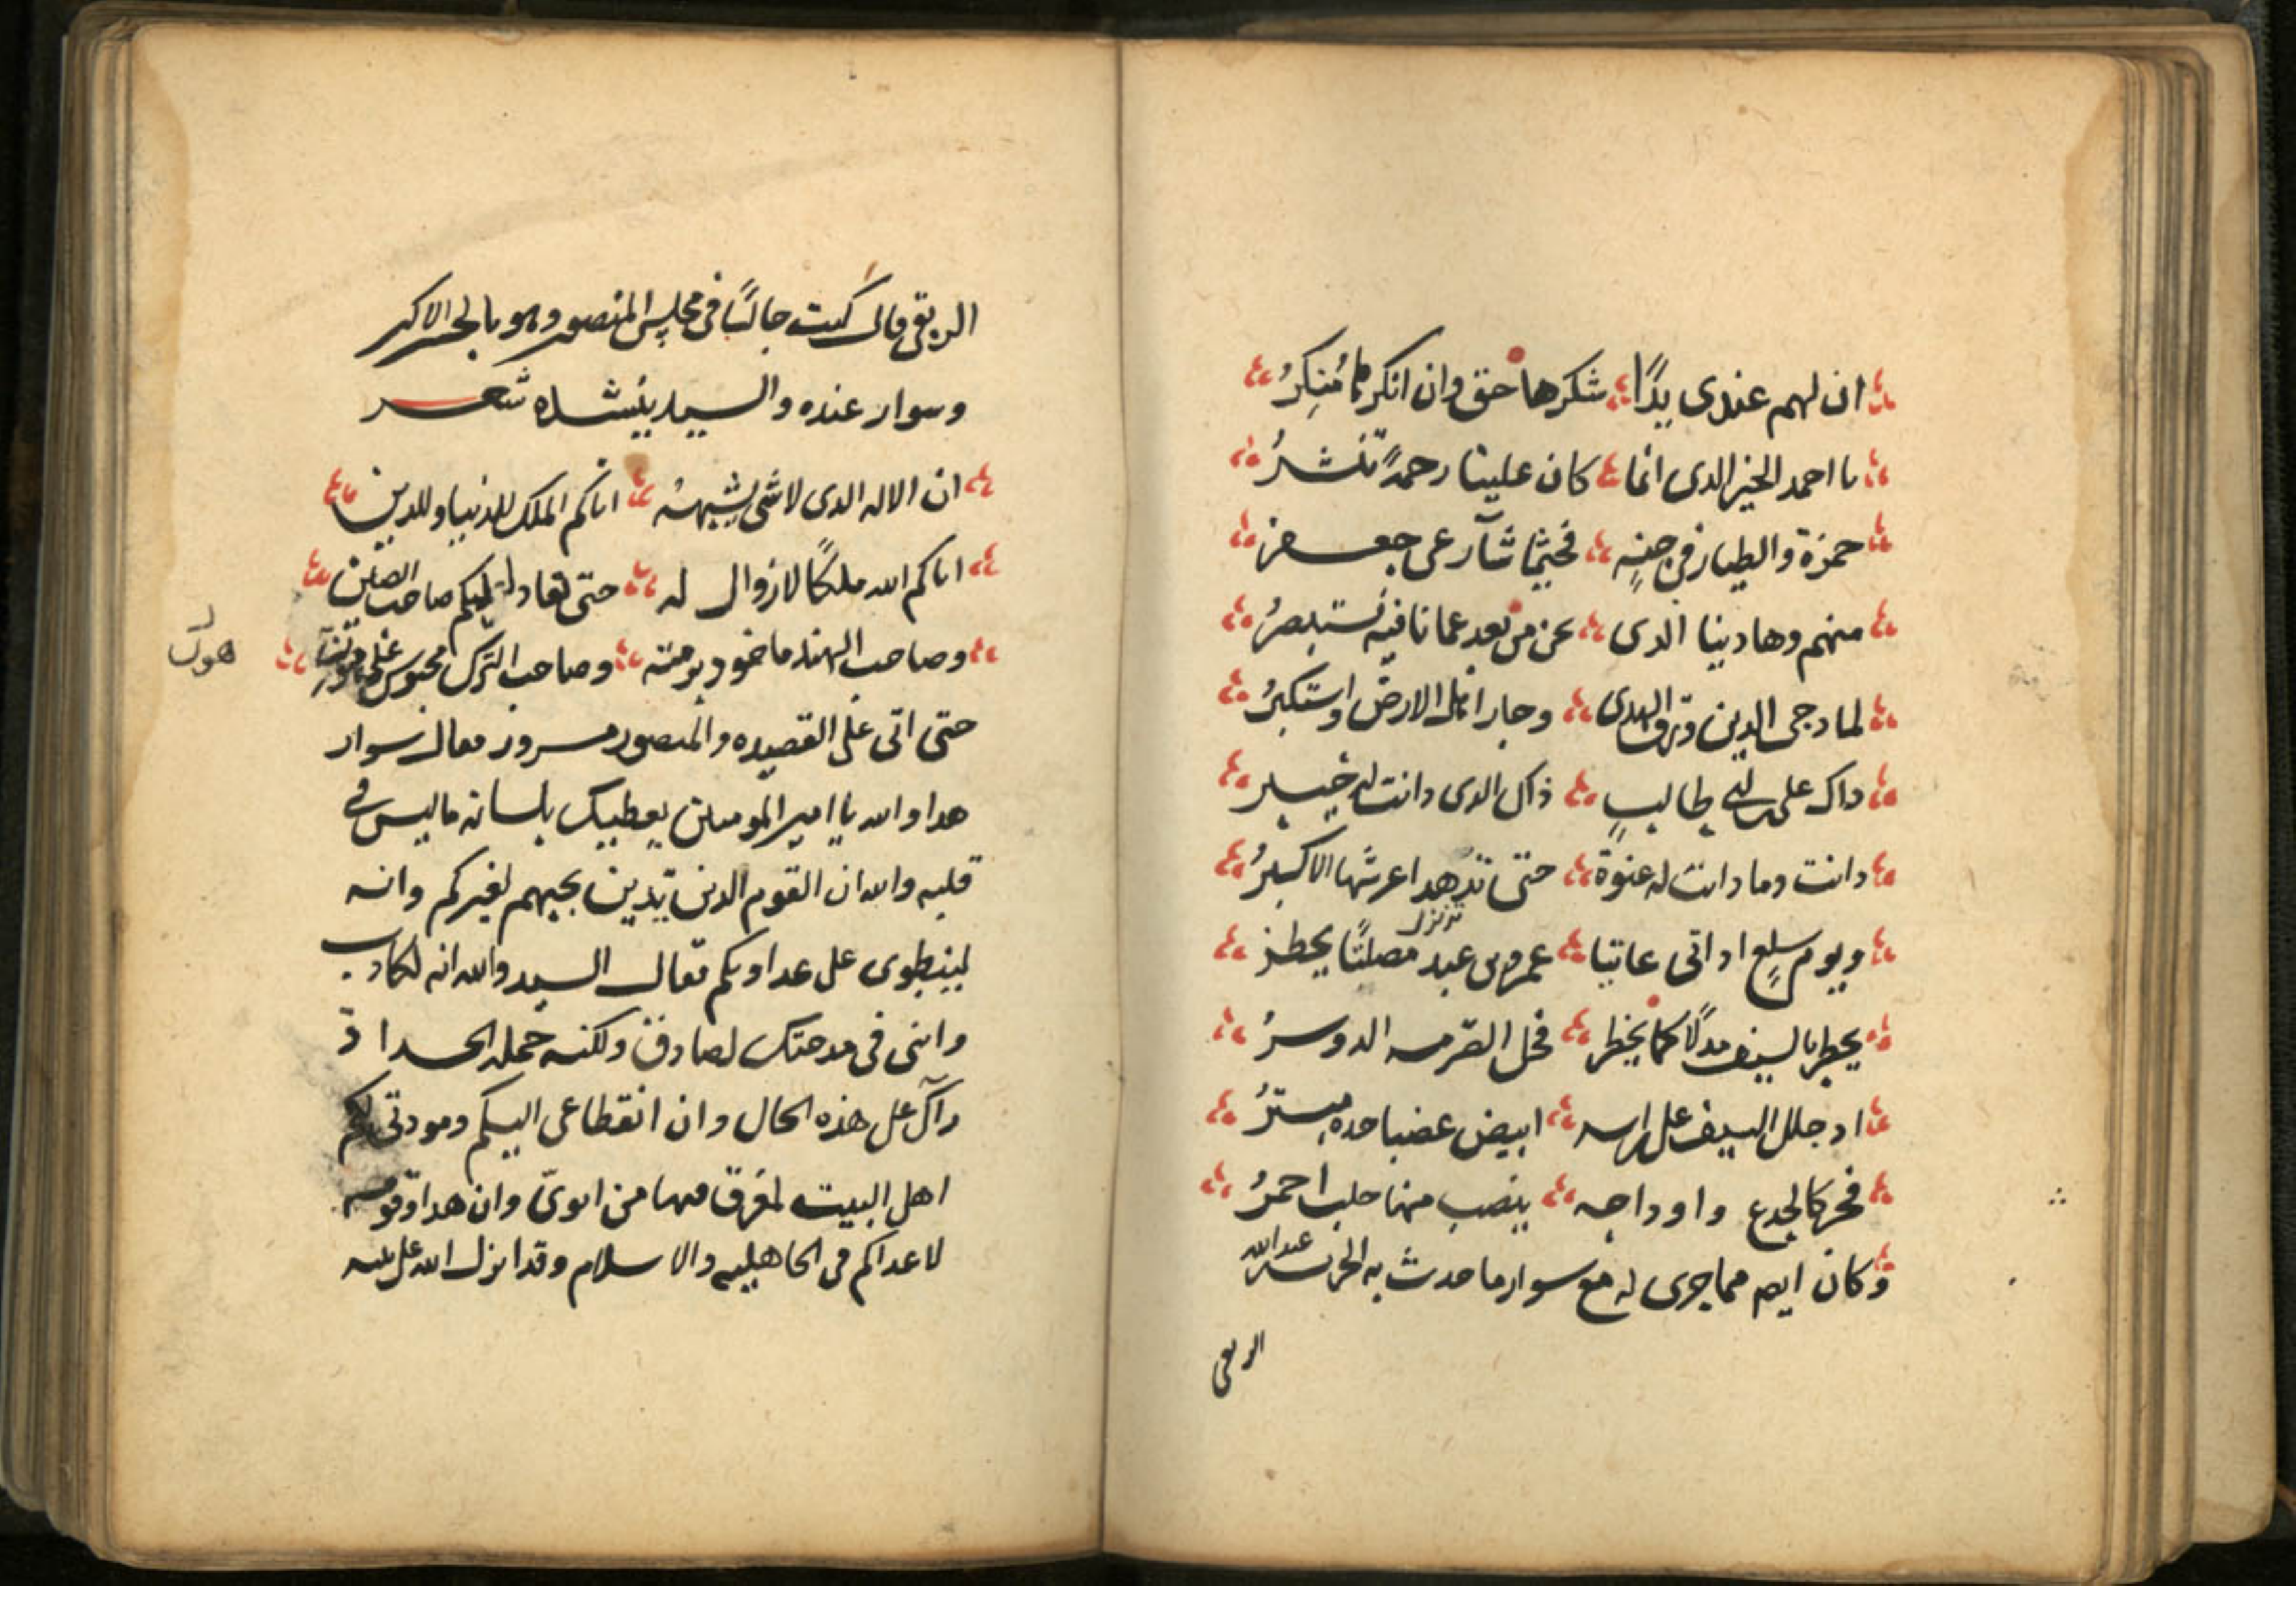 ان لهم عندى يدًا شكرها حق وان انكرها مُنكِرُ
يا احمد الخير الدى انما كان علينا رحمةً تنشرُ
حمزة والطيار في جنةٍ فحيثما شآ رعى جعفر
منهم وهادينا الدى نحن من بعد عمانا فيه نستبصرُ
لما دجى الدين ورق الهدى وجار اهل الارض واستكبرُ
داك على بن ابى طالبٍ ذاك الدى دانت له خيبر
دانت وما دانت له عنوة حتى تدهدا عرشها الاكبرُ
تزلزل
ويوم سلعٍ اد اتى عاتيا عمرو بن عبد مصلتًا يخطر
يخطر بالسيف مدلًا كما يخطر فحل الصرمه الدوسرُ
اد جلل السيف على راسه ابيض عضبا حده مبترُ
فخر كالجدع واوداجه ينصب منها حلب احمرُ
وكان ايضا مما جرى له مع سوار ما حدث به الحرث بن عبدالله
الربعى
الربعى قال كنت جالسًا فى مجلس المنصور وهو بالجسر الاكبر
وسوار عنده والسيد ينشده شعر
ان الاله الدى لا شى يشبهه اتاكم الملك للدنيا وللدين
اتاكم الله ملكًا لا زوال له حتى يقاد اليكم صاحب الصين
وصاحب الهند ماخود برمته وصاحب الترك محبوس على
هون
حتى اتى على القصيده والمنصور مسرور فقال سوار
هدا والله يا امير المومنين يعطيك بلسانه ما ليس فى
قلبه والله ان القوم الدين يدين بحبهم لغيركم وانه
لينطوى على عداوتكم فقال السيد والله انه لكادب
وانى فى مدحتك لصادق ولكنه حمله الحسد اذ
رآك على هذه الحال وان انقطاعى اليكم ومودتى لكم
اهل البيت لمعرق فيها من ابوىّ وان هدا وقومه
لاعداكم فى الجاهليه والاسلام وقد انزل الله على نبيه